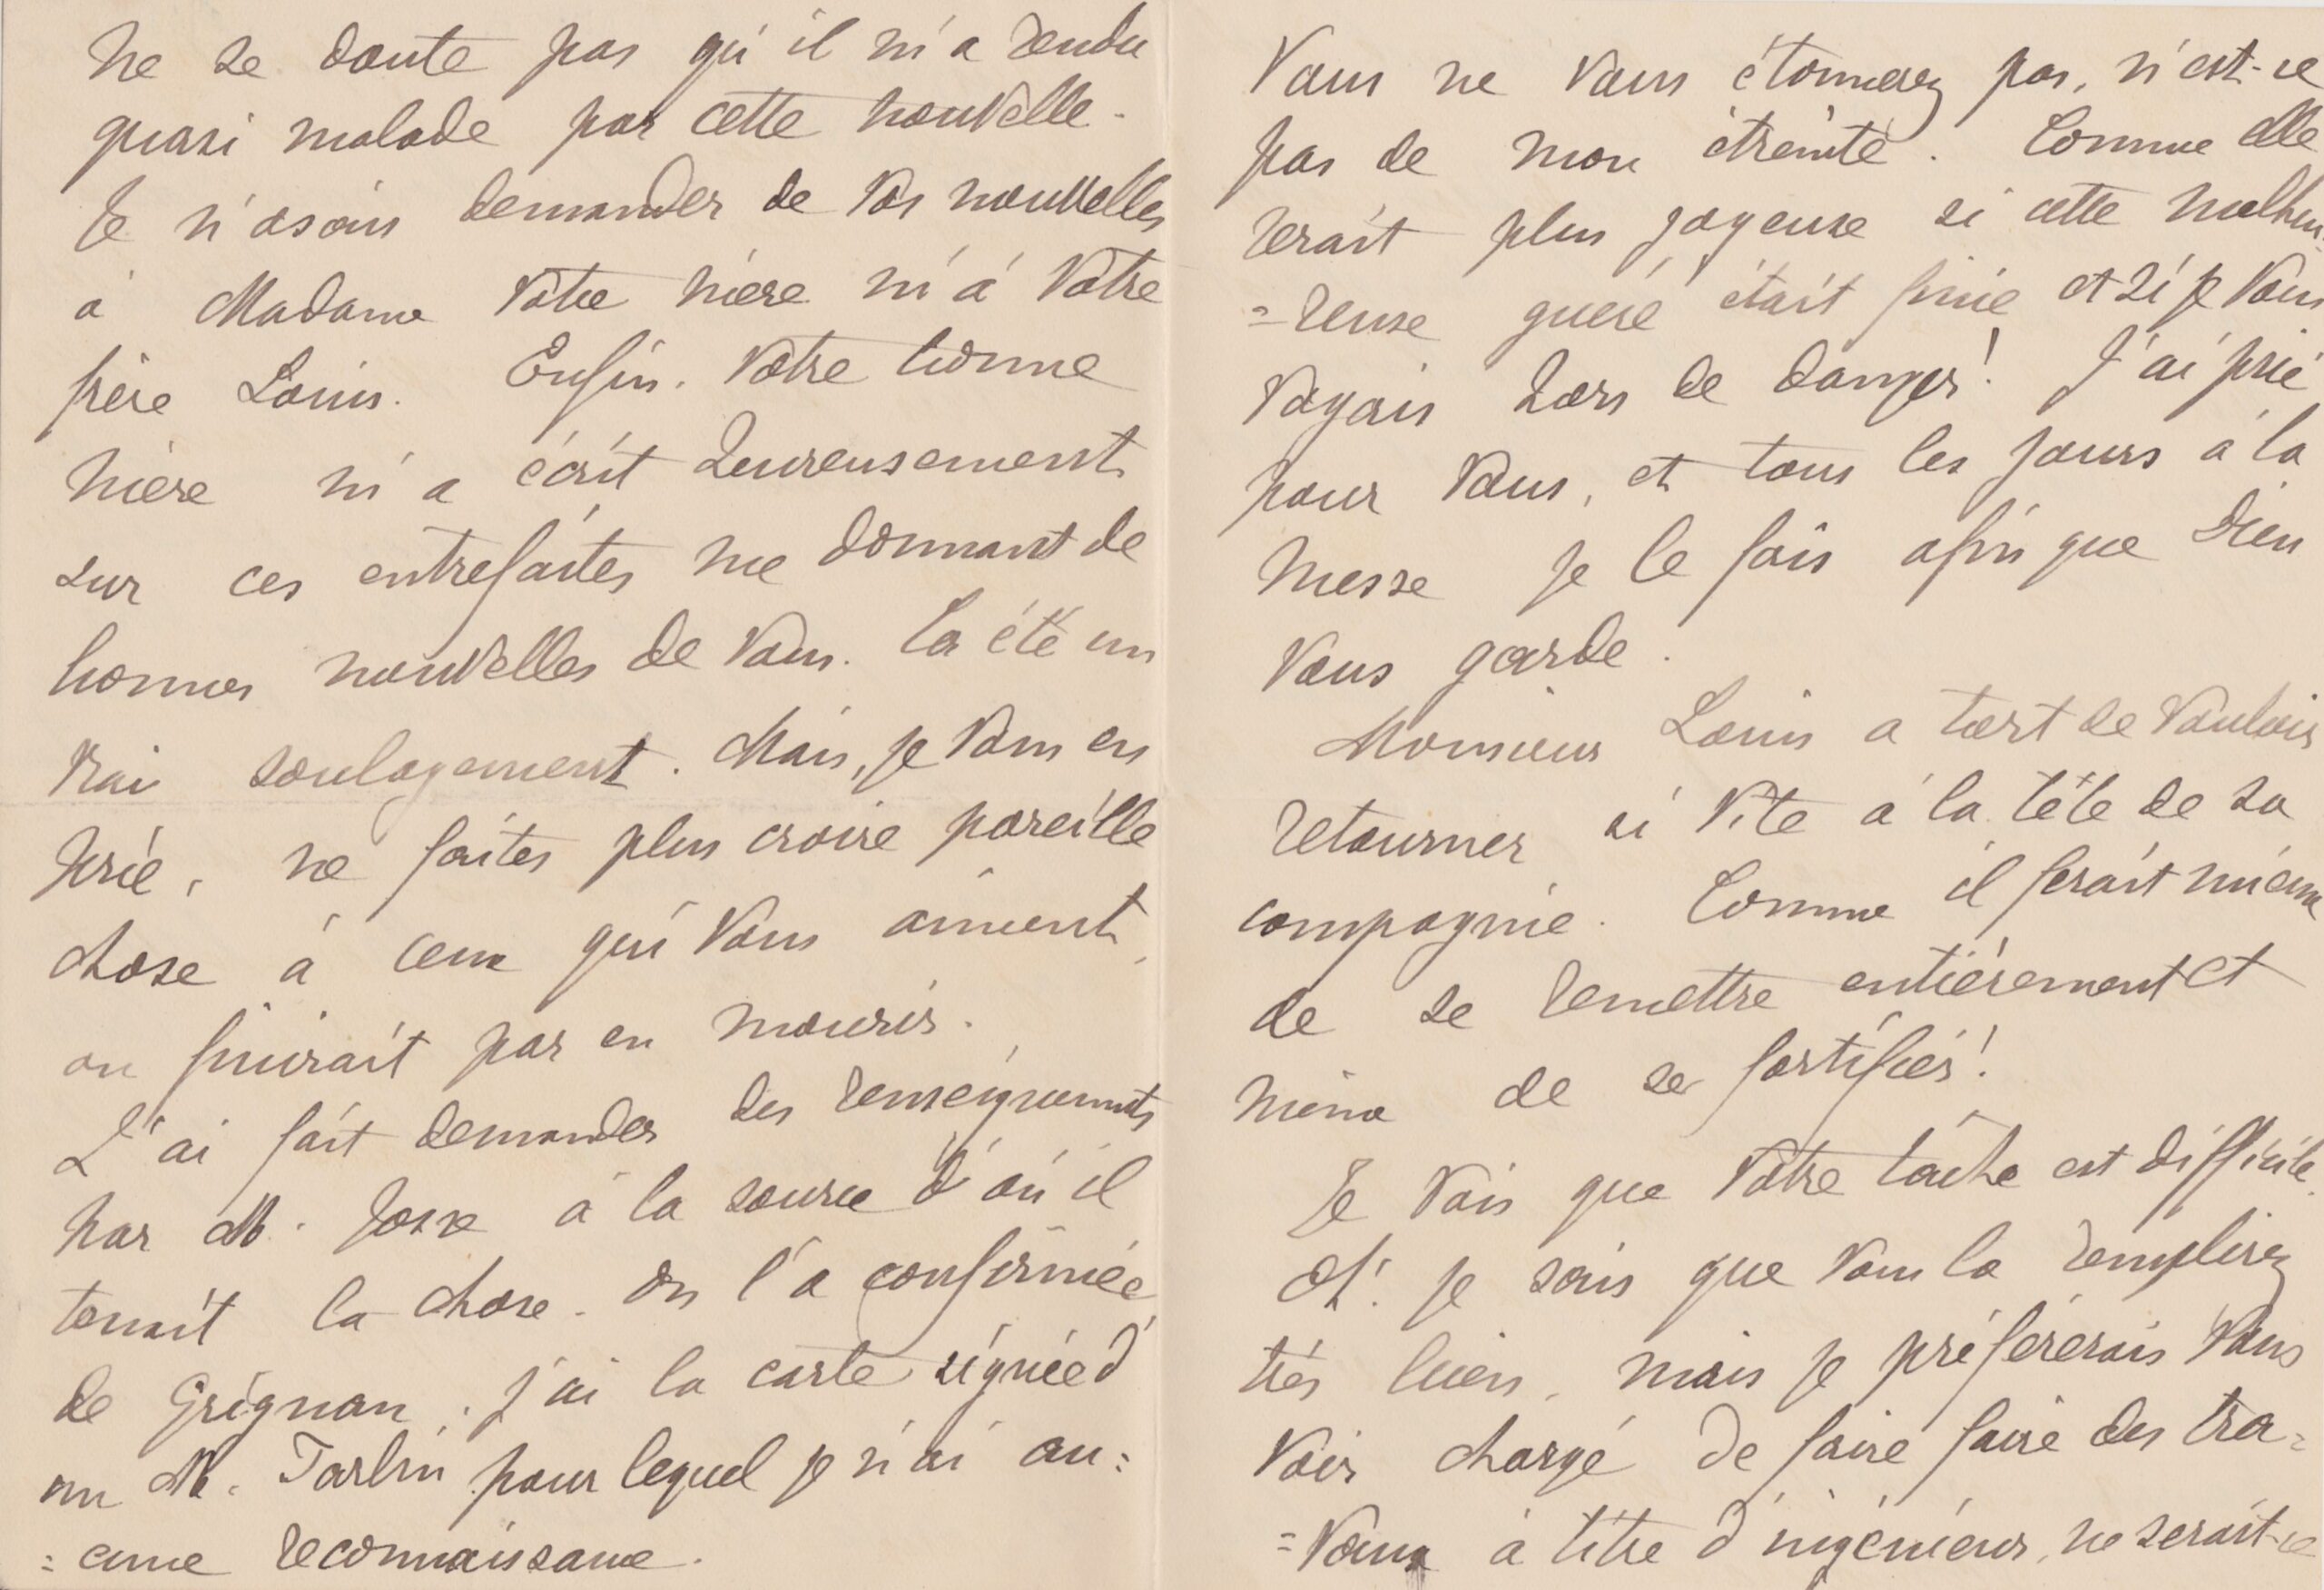 ne se doute pas qu'il m'a rendu
quasi malade par cette nouvelle.
Je n'osais demander de vos nouvelles
à Madame votre mère ni à votre
frère Louis. Enfin, votre bonne
mère m'a écrit heureusement
sur ces entrefaites me donnant de
bonnes nouvelles de vous. Ça été un
vrai soulagement. Mais, je vous en
prie, ne faites plus croire pareille
chose à ceux qui vous aiment,
on finirait par en mourir.
J'ai fait demander des renseignements
par M. Josse à la source d'où il
tenait la chose. On l'a confirmée
de Grignan, j'ai la carte signée d'
un M. Tarbin pour lequel je n'ai au=
=cune reconnaissance.
Vous ne vous étonnerez pas, n'est-ce
pas de mon étreinte. Comme elle
serait plus joyeuse si cette malheu=
=reuse guerre était finie et si je vous
voyais hors de danger! J'ai prié
pour vous, et tous les jours à la
messe je le fais afin que Dieu
vous garde.
Monsieur Louis a tort de vouloir
retourner si vite à la tête de sa
compagnie. Comme il ferait mieux
de se remettre entièrement et
même de se fortifier!
Je vois que votre tâche est difficile.
Et je sais que vous la remplirez
très bien, mais je préférerais vous
voir chargé de faire faire des tra=
=vaux à titre d'ingénieur, ne serait-ce